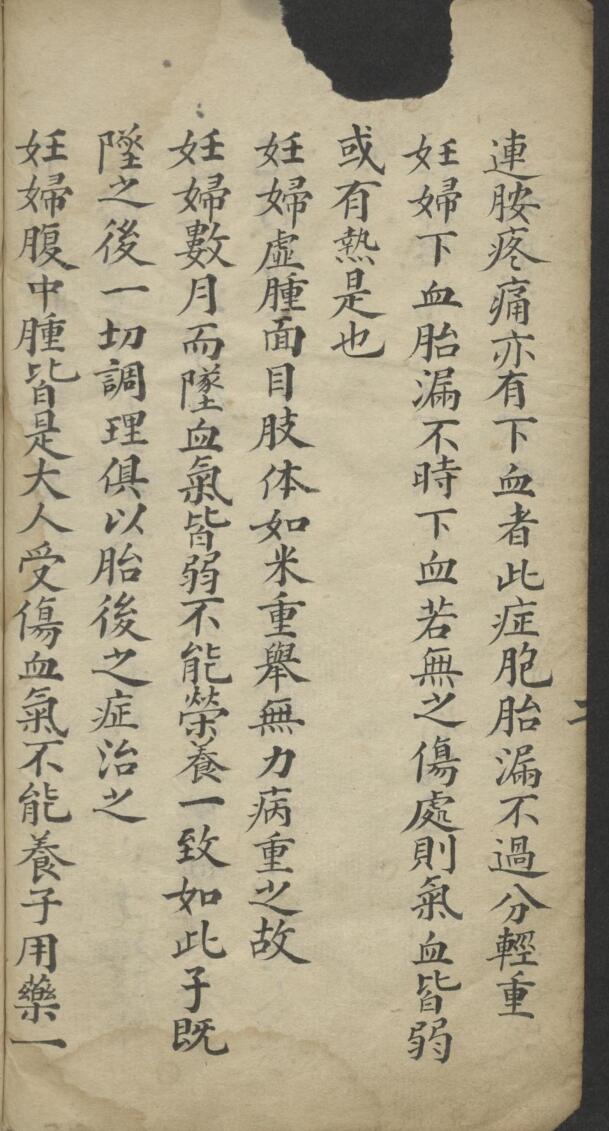 連胺疼痛亦有下血者此症胞胎漏不過分輕重
妊婦下血胎漏不時下血若無之傷處則氣血皆弱
或有熱是也
妊婦虛腫面目肢体如米重舉無力病重之故
妊婦數月而墜血氣皆弱不能榮養一致如此子既
墜之後一切調理俱以胎後之症治之
妊婦腹中腫皆是大人受傷血氣不能養子用藥一